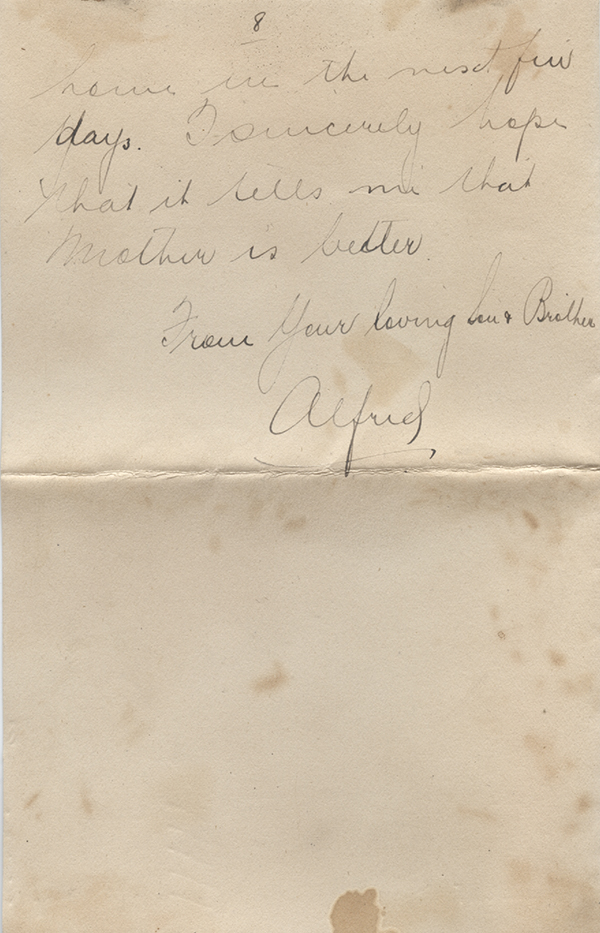 8
home in the next few
days. I sincerely hope
that it tells me that
Mother is better.
From Your loving Son & Brother
Alfred